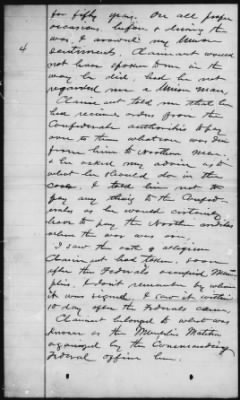 for fifty years. On all proper
occasions, before & during the
war, I avowed my Union
sentiments. Claimant would
not have spoken to me in the
way he did, had he not
regarded me a Union man.
Claimant told me that he
had received orders from the
Confederate authorities to pay
over to them whatever was due
from him to Northern men.
& he asked my advice as to
what he should do in the
case. I told him not to
pay any thing to the Confed-
erates as he would certainly
have to pay the North
when the war was over.
I saw the oath of allegiance
Claimant had taken, soon
after the Federals occupied Mem
phis. I don't remember by whom
it was signed. I saw it within
10 days after the Federals came.
Claimant belonged to what was
known as the Memphis Militia
organized by the Commanding
Federal officer here.
4